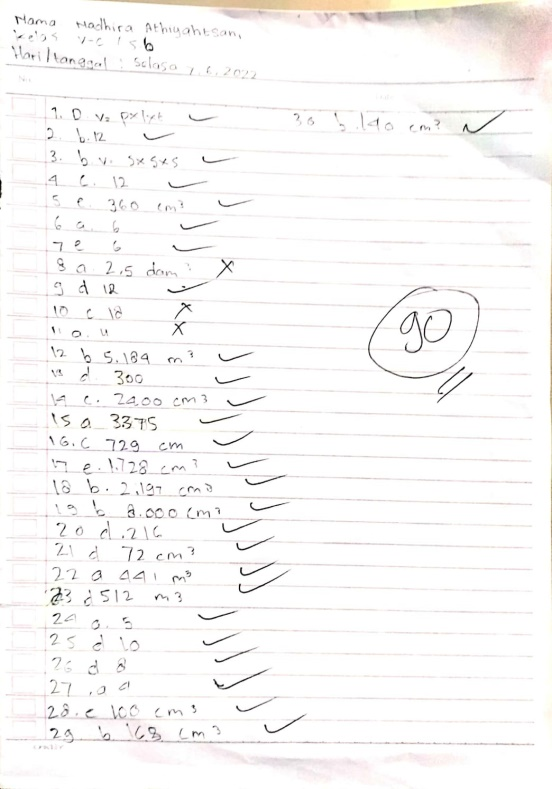 Nama Nadhira Athiyahtsani
kelas V-C / 5b
Hari/tanggal : Selasa 7.6.2022
No:
1. D v= pxlxt
2. b. 12
3. b v. sxsxs
4 c. 12
5 e. 360 cm³
6 a. 6
7 e 6
8 a 2,5 dam³
9 d 12
10 c 18
11 a. 4
12 b 5.184 m³
13 d. 300
14 c. 2400 cm³
15 a 3375
16. c 729 cm
17 e. 1.728 cm³
18 b. 2.197 cm³
19 b 8.000 cm³
20 d .216
21 d 72 cm³
22 a 441 m³
23 d 512 m3
24 a. 5
25 d 10
26 d 8
27 .a 9
28. c 100 cm³
29 b 168 cm³
30 b. 140 cm³
90